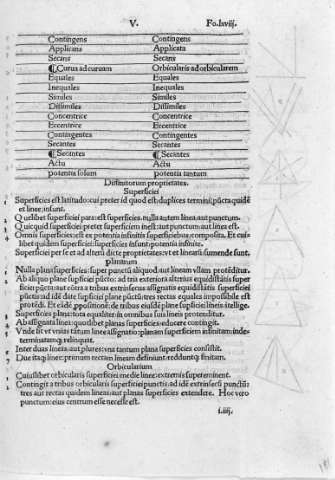 V. Fo.lxviij.
Contingens Contingens
Applicans Applicata
Secans Secans
¶Curua ad curuam Orbicularis ad orbicularem
Equales Equales
Inequales Inequales
Similes Similes
Dissimiles Dissimiles
Concentrice Concentrice
Eccentrice Eccentrice
Contingentes Contingentes
Secantes Secantes
¶ Secantes ¶ Secantes
Actu Actu
potentia solum potentia tantum
Diffinitorum proprietates.
Superficies
Superficies est latitudo: cui preter id quod est: duplices termini: pūcta quidē
et linee: insunt.
Quelibet superficiei pars: est superficies. nulla autem linea aut punctum.
Quicquid superficiei preter superficiem inest: aut punctum: aut linea est.
Omnis superficies: est ex potentia infinitis superficiebus composita. Et cui
libet quidem superficiei: superficies insunt: potentia infinite.
Superficies per se et ad alterā dicte proprietates: vt et linearū: sumende sunt.
planitum
Nulla plus superficiei: super punctū aliquod: aut lineam vllam protēditur.
Ab aliquo plane superficiei pūcto: ad tris exteriora alterius equidistātis super
ficiei pūcta: aut
pūctis: ad idē date supficiei plane pūctū: tres rectas equales impossibile est
protēdi. Et eidē ppositionē: de tribus eiusdē plane supficiei lineis itellige.
Superficies plana: tota equaliter: in omnibus suis lineis protenditur.
Ab assignata linea: quodlibet planas superficies: educere contingit.
Vnde fit vt vnius tātum linee assignatio: planam superficiem infinitam: inde-
terminatamq; relinquit.
Inter duas lineas: aut plures: vna tantum plana superficies consistit.
Due itaq; linee: primum rectam lineam definiunt: reddunt q; finitam.
Orbicularium
Cuiuslibet orbicularis superficiei medie linee: extremis supereminent.
Contingit a tribus orbicularis superficiei punctis: ad idē extrinseci punctū:
tres aut rectas quidem lineas: aut planas superficies extendere. Hoc vero
punctum: eius centrum esse necesse est.
i.iiij.